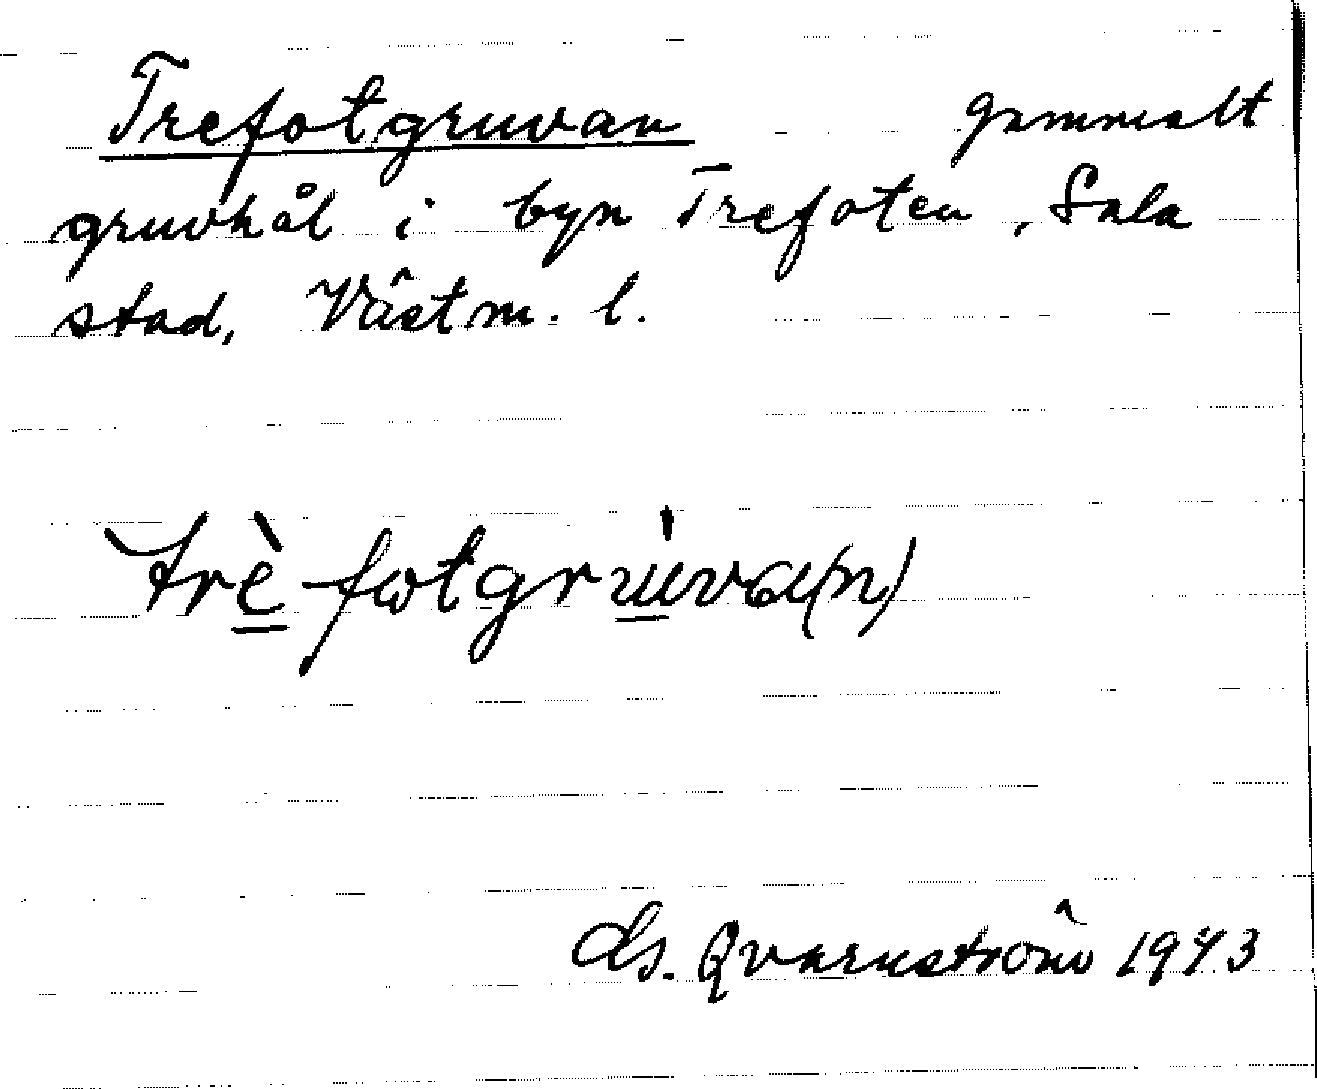 Trefotgruvan gammalt
gruvhål i byn Trefoten, Sala
stad, Västm. l.
trè fotgrùva(n)
Qvarnström 1943